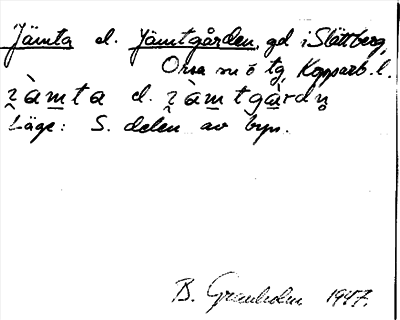 Jämta el. Jämtgården, gd i Slättberg,
Orsa sn o tg, Kopparb. l.
i̯àmta el. i̯àmtgàrdn̥
Läge: S. delen av byn.
B. Greenholm 1947.